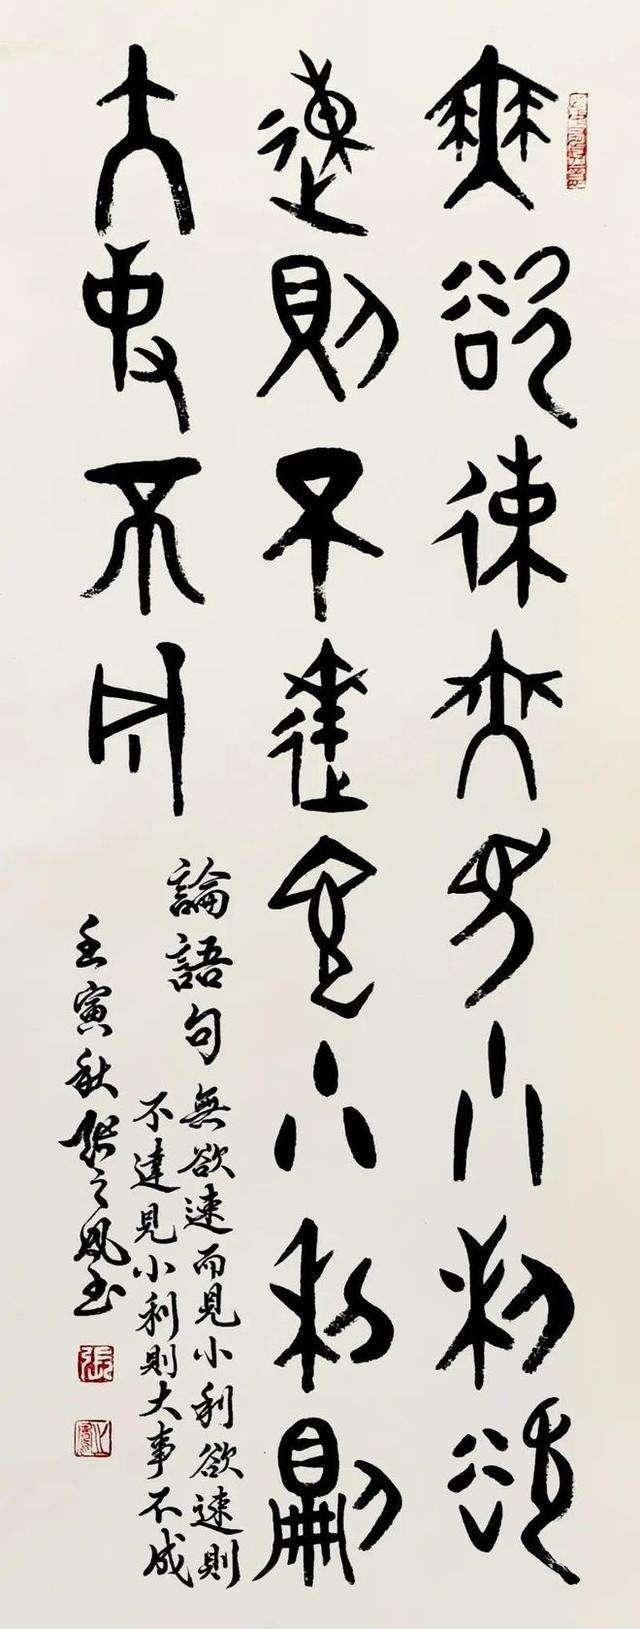 無欲速而見小利欲
速則不達見小利則
大事不成
論語句
無欲速而見小利欲速則
不達見小利則大事不成
壬寅秋張之鳳書
張